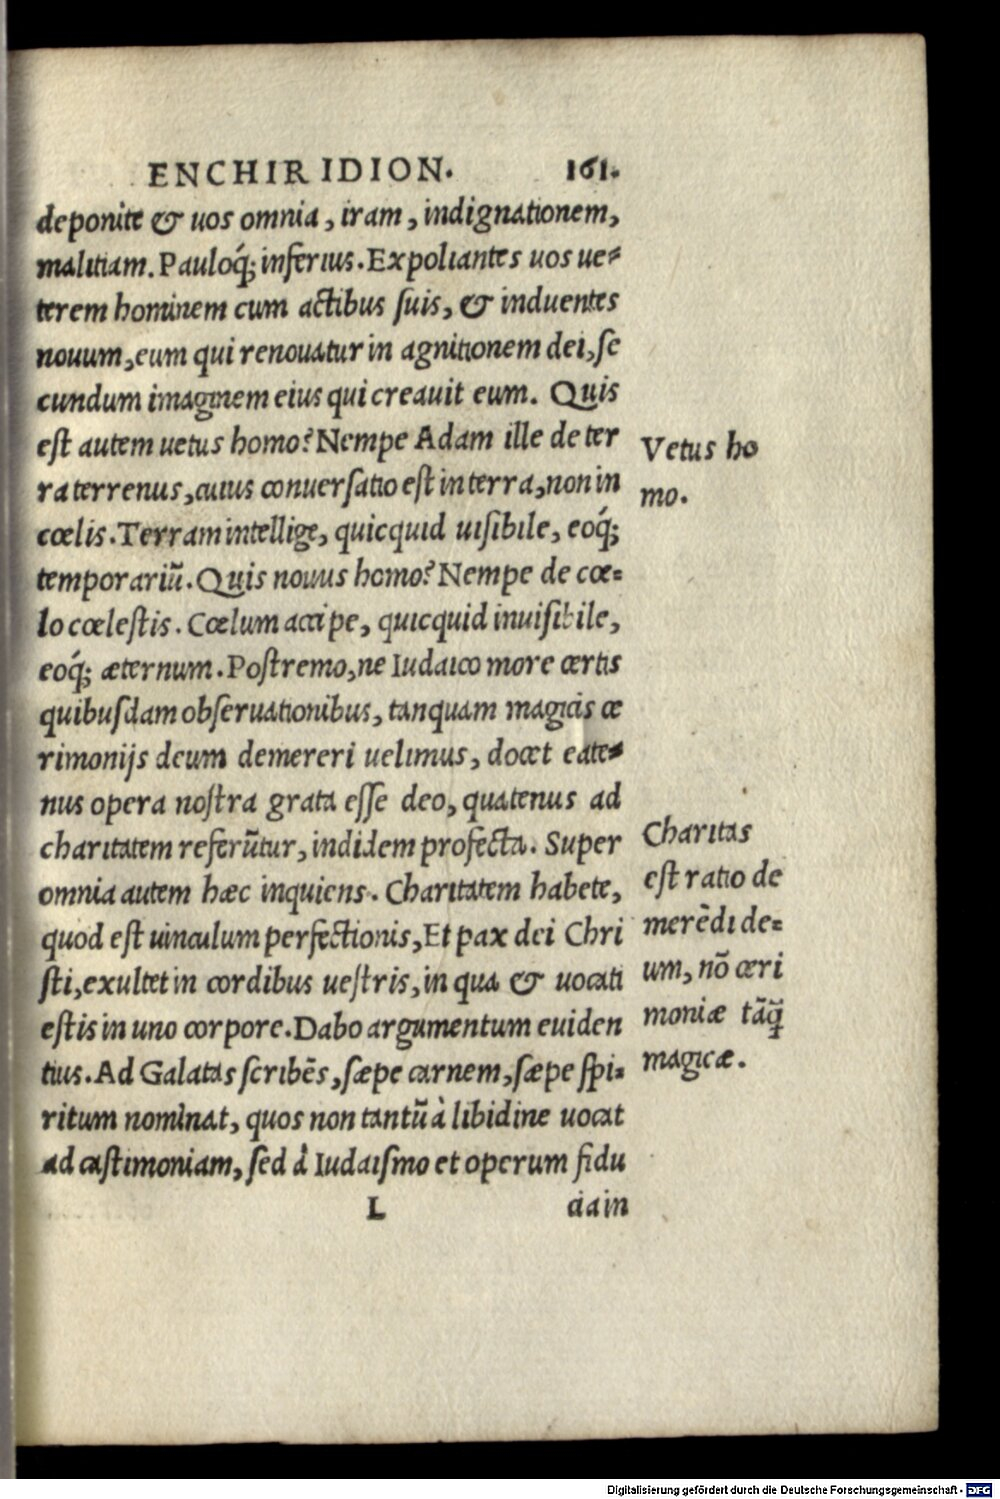 ENCHIRIDION. 161.
deponite & uos omnia, iram, indignationem,
malitiam. Pauloq́; inferius. Expoliantes uos ue-
terem hominem cum actibus ſuis, & induentes
nouum, eum qui renouatur in agnitionem dei, ſe
cundum imaginem eius qui creauit eum. Quis
eſt autem uetus homo? Nempe Adam ille de ter
ra terrenus, cuius conuerſatio eſt in terra, non in
cœlis. Terram intellige, quicquid uiſibile, eoq́;
temporariū. Quis nouus homo? Nempe de cœ-
lo cœleſtis. Cœlum accipe, quicquid inuiſibile,
eoq́; æternum. Poſtremo, ne Iudaico more certis
quibuſdam obſeruationibus, tanquam magicis ce
rimonijs deum demereri uelimus, docet eate-
nus opera noſtra grata eſſe deo, quatenus ad
charitatem referūtur, indidem profecta. Super
omnia autem hæc inquiens. Charitatem habete,
quod eſt uinculum perfectionis, Et pax dei Chri
ſti, exultet in cordibus ueſtris, in qua & uocati
eſtis in uno corpore. Dabo argumentum euiden
tius. Ad Galatas ſcribēs, ſæpe carnem, ſæpe ſpi-
ritum nominat, quos non tantū à libidine uocat
ad caſtimoniam, ſed à Iudaiſmo et operum fidu
L ciain
Vetus ho
mo.
Charitas
eſt ratio de
merēdi de-
um, nō ceri
moniæ tāq̄
magicæ.
Digitalisierung gefördert durch die Deutsche Forschungsgemeinschaft - DFG